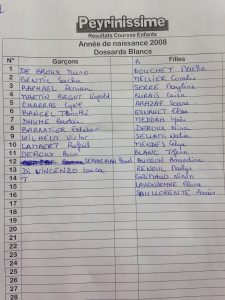 Peyrinissime
Résultats Courses Enfants
Année de naissance 2008
Dossards Blancs
N° Garçons Filles
1 DE BROUX Nano BOUCHET Maëlle
2 GENTIL Sacha TELLIER Coralie
3 RAPHAEL Dorian SERRE Maylina
4 MARTIN BEGOT Léopold AURAIS Luisa
5 CHARRAS Cyril ARHZAF Soane
6 BANCEL Timothé ESNAULT Elsa
7 DHUME Bastien MEDDAH Yaël
8 BARRATIER Esteban DEROUX Nina
9 WILHELM Victor SELLATI Nadia
10 LAMBERT Rafael MENDES Celya
11 DEROUX Nino BLANC Tiféna
12 BUISSON Amandine
13 DI VINCENZO Luca RENOUL Maëlys
14 GRIMAUD Ninon
15 LAVENDOMNE Flora
16 SAULLORENTE Anaïs
17
18
19
20
21
22
23
24
25
26
27
28